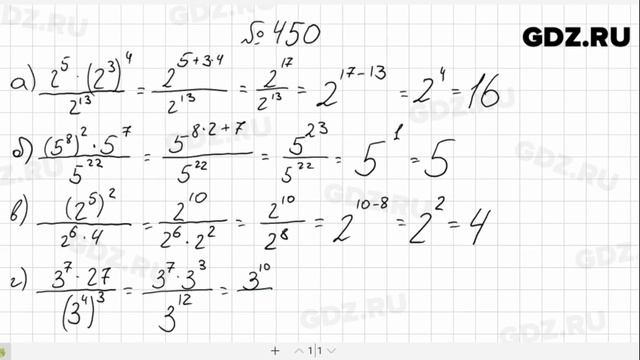 № 450
GDZ.RU
а) \frac{2^5 · (2^3)^4}{2^{13}} = \frac{2^{5+3·4}}{2^{13}} = \frac{2^{17}}{2^{13}} = 2^{17-13} = 2^4 = 16
б) \frac{(5^8)^2 · 5^7}{5^{22}} = \frac{5^{8·2+7}}{5^{22}} = \frac{5^{23}}{5^{22}} = 5^1 = 5
в) \frac{(2^5)^2}{2^6 · 4} = \frac{2^{10}}{2^6 · 2^2} = \frac{2^{10}}{2^8} = 2^{10-8} = 2^2 = 4
г) \frac{3^7 · 27}{(3^4)^3} = \frac{3^7 · 3^3}{3^{12}} = \frac{3^{10}}{}
1|1